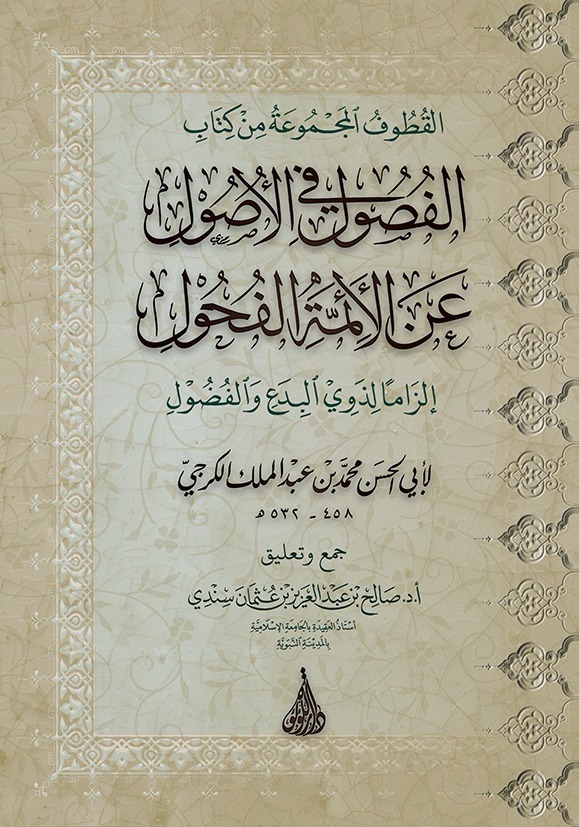 القُطُوفُ المَجْمُوعَةُ مِنْ كِتَابِ
الفُصُولِ فِي الأُصُولِ
عَنِ الأَئِمَّةِ الفُحُولِ
إِلْزَامًا لِذَوِي البِدَعِ وَالفُضُولِ
لأبي الحسن محمَّد بن عبد الملك الكرجيّ
٤٥٨ - ٥٣٢ هـ
جمع وتعليق
أ.د. صَالِح بْن عَبْدِ العَزِيزِ بْنِ عُثْمَانَ سِنْدِي
أُسْتَاذُ العَقِيدَةِ بِالجَامِعَةِ الإِسْلَامِيَّةِ
بِالمَدِينَةِ النَّبَوِيَّةِ
دار اللؤلؤة